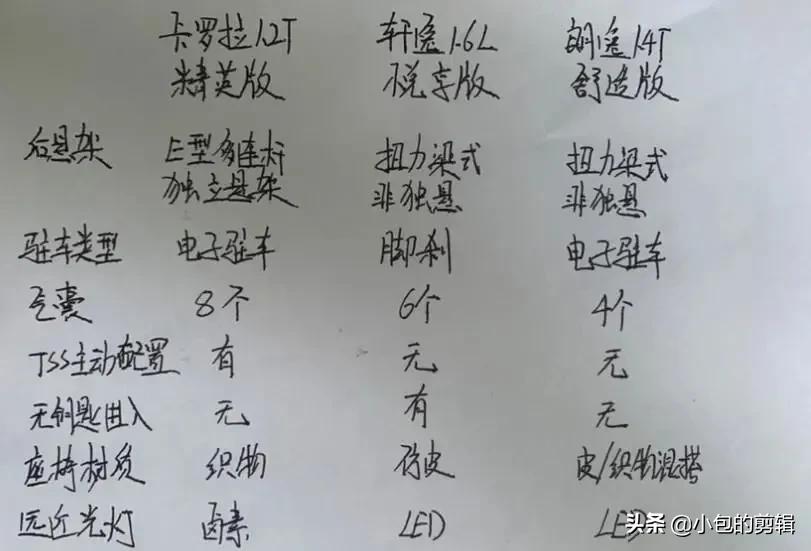 卡罗拉1.2T 轩逸1.6L 朗逸1.4T
精英版 悦享版 舒适版
后悬架 E型多连杆 扭力梁式 扭力梁式
独立悬架 非独悬 非独悬
驻车类型 电子驻车 脚刹 电子驻车
气囊 8个 6个 4个
TSS主动配置 有 无 无
无钥匙进入 无 有 无
座椅材质 织物 仿皮 皮/织物混搭
远近光灯 卤素 LED LED
头条 @小包的剪辑